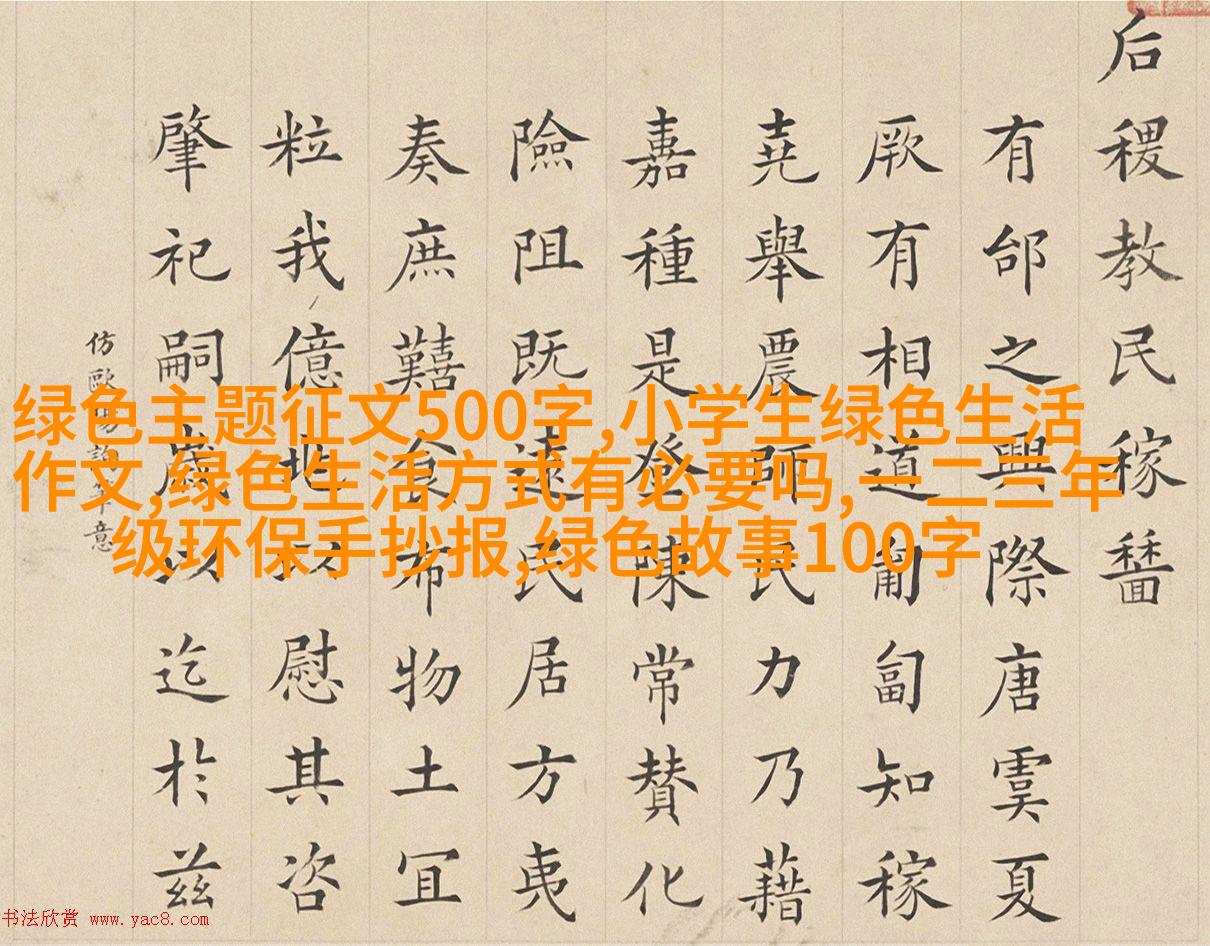 后稷教民稼穡
有邰之興際唐虞夏
厥有相道匍匐知稼
堯舉農師民力乃藉
嘉種是登陳常賛化
險阻既遠民居方夷
奏庶囏食布物土冝
粒我億以慰其咨
肇祀嗣歲以迄於茲
仿歐陽詢筆意
绿色主题征文500字,小学生绿色生活
作文,绿色生活方式有必要吗,一二三年
级环保手抄报,绿色故事100字
书法欣赏 www.yac8.com